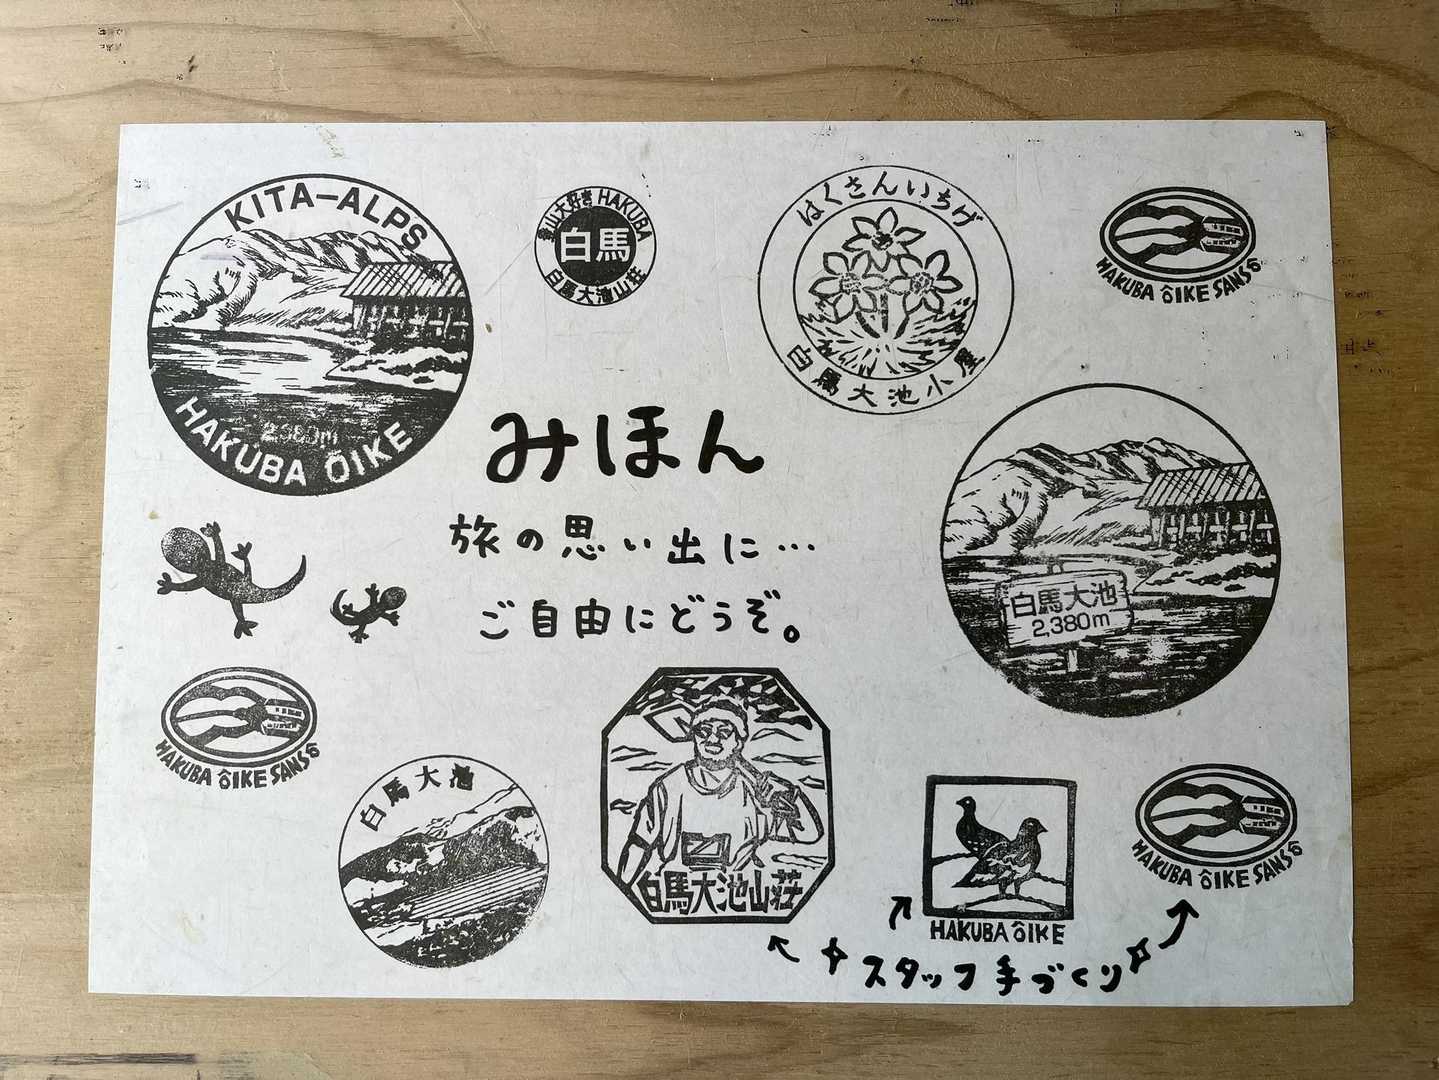 KITA-ALPS
2,380m
HAKUBA ÔIKE
登山大好き HAKUBA
白馬
白馬大池山荘
はくさんいちげ
白馬大池小屋
HAKUBA ÔIKE SANSÔ
みほん
旅の思い出に…
ご自由にどうぞ。
白馬大池
2,380m
HAKUBA ÔIKE SANSÔ
白馬大池
白馬大池山荘
HAKUBA ÔIKE
HAKUBA ÔIKE SANSÔ
スタッフ手づくり